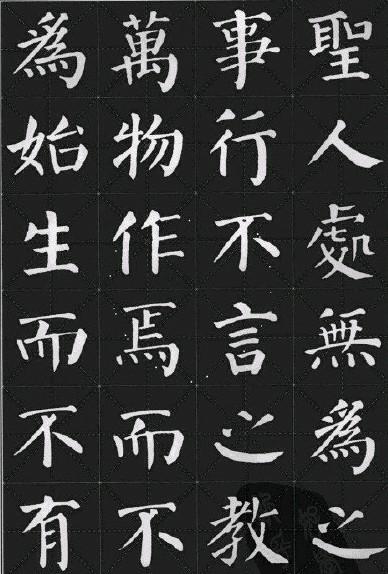 聖人處無爲之
事行不言之教
萬物作焉而不
爲始生而不有